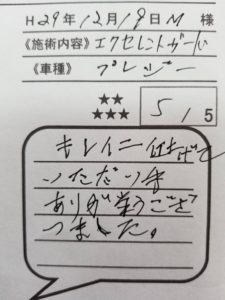 H29年12月19日M 様
《施術内容》エクセレントガード
《車種》 プレジー
★★
★★★ 5/5
キレイに仕上げて
いただいて
ありがとうござ
いました。